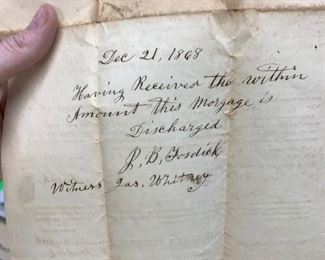 Dec 21, 1868
Having Received the within
Amount this Morgage is
Discharged
J, B, Fosdick
Witness Jas. Whitney